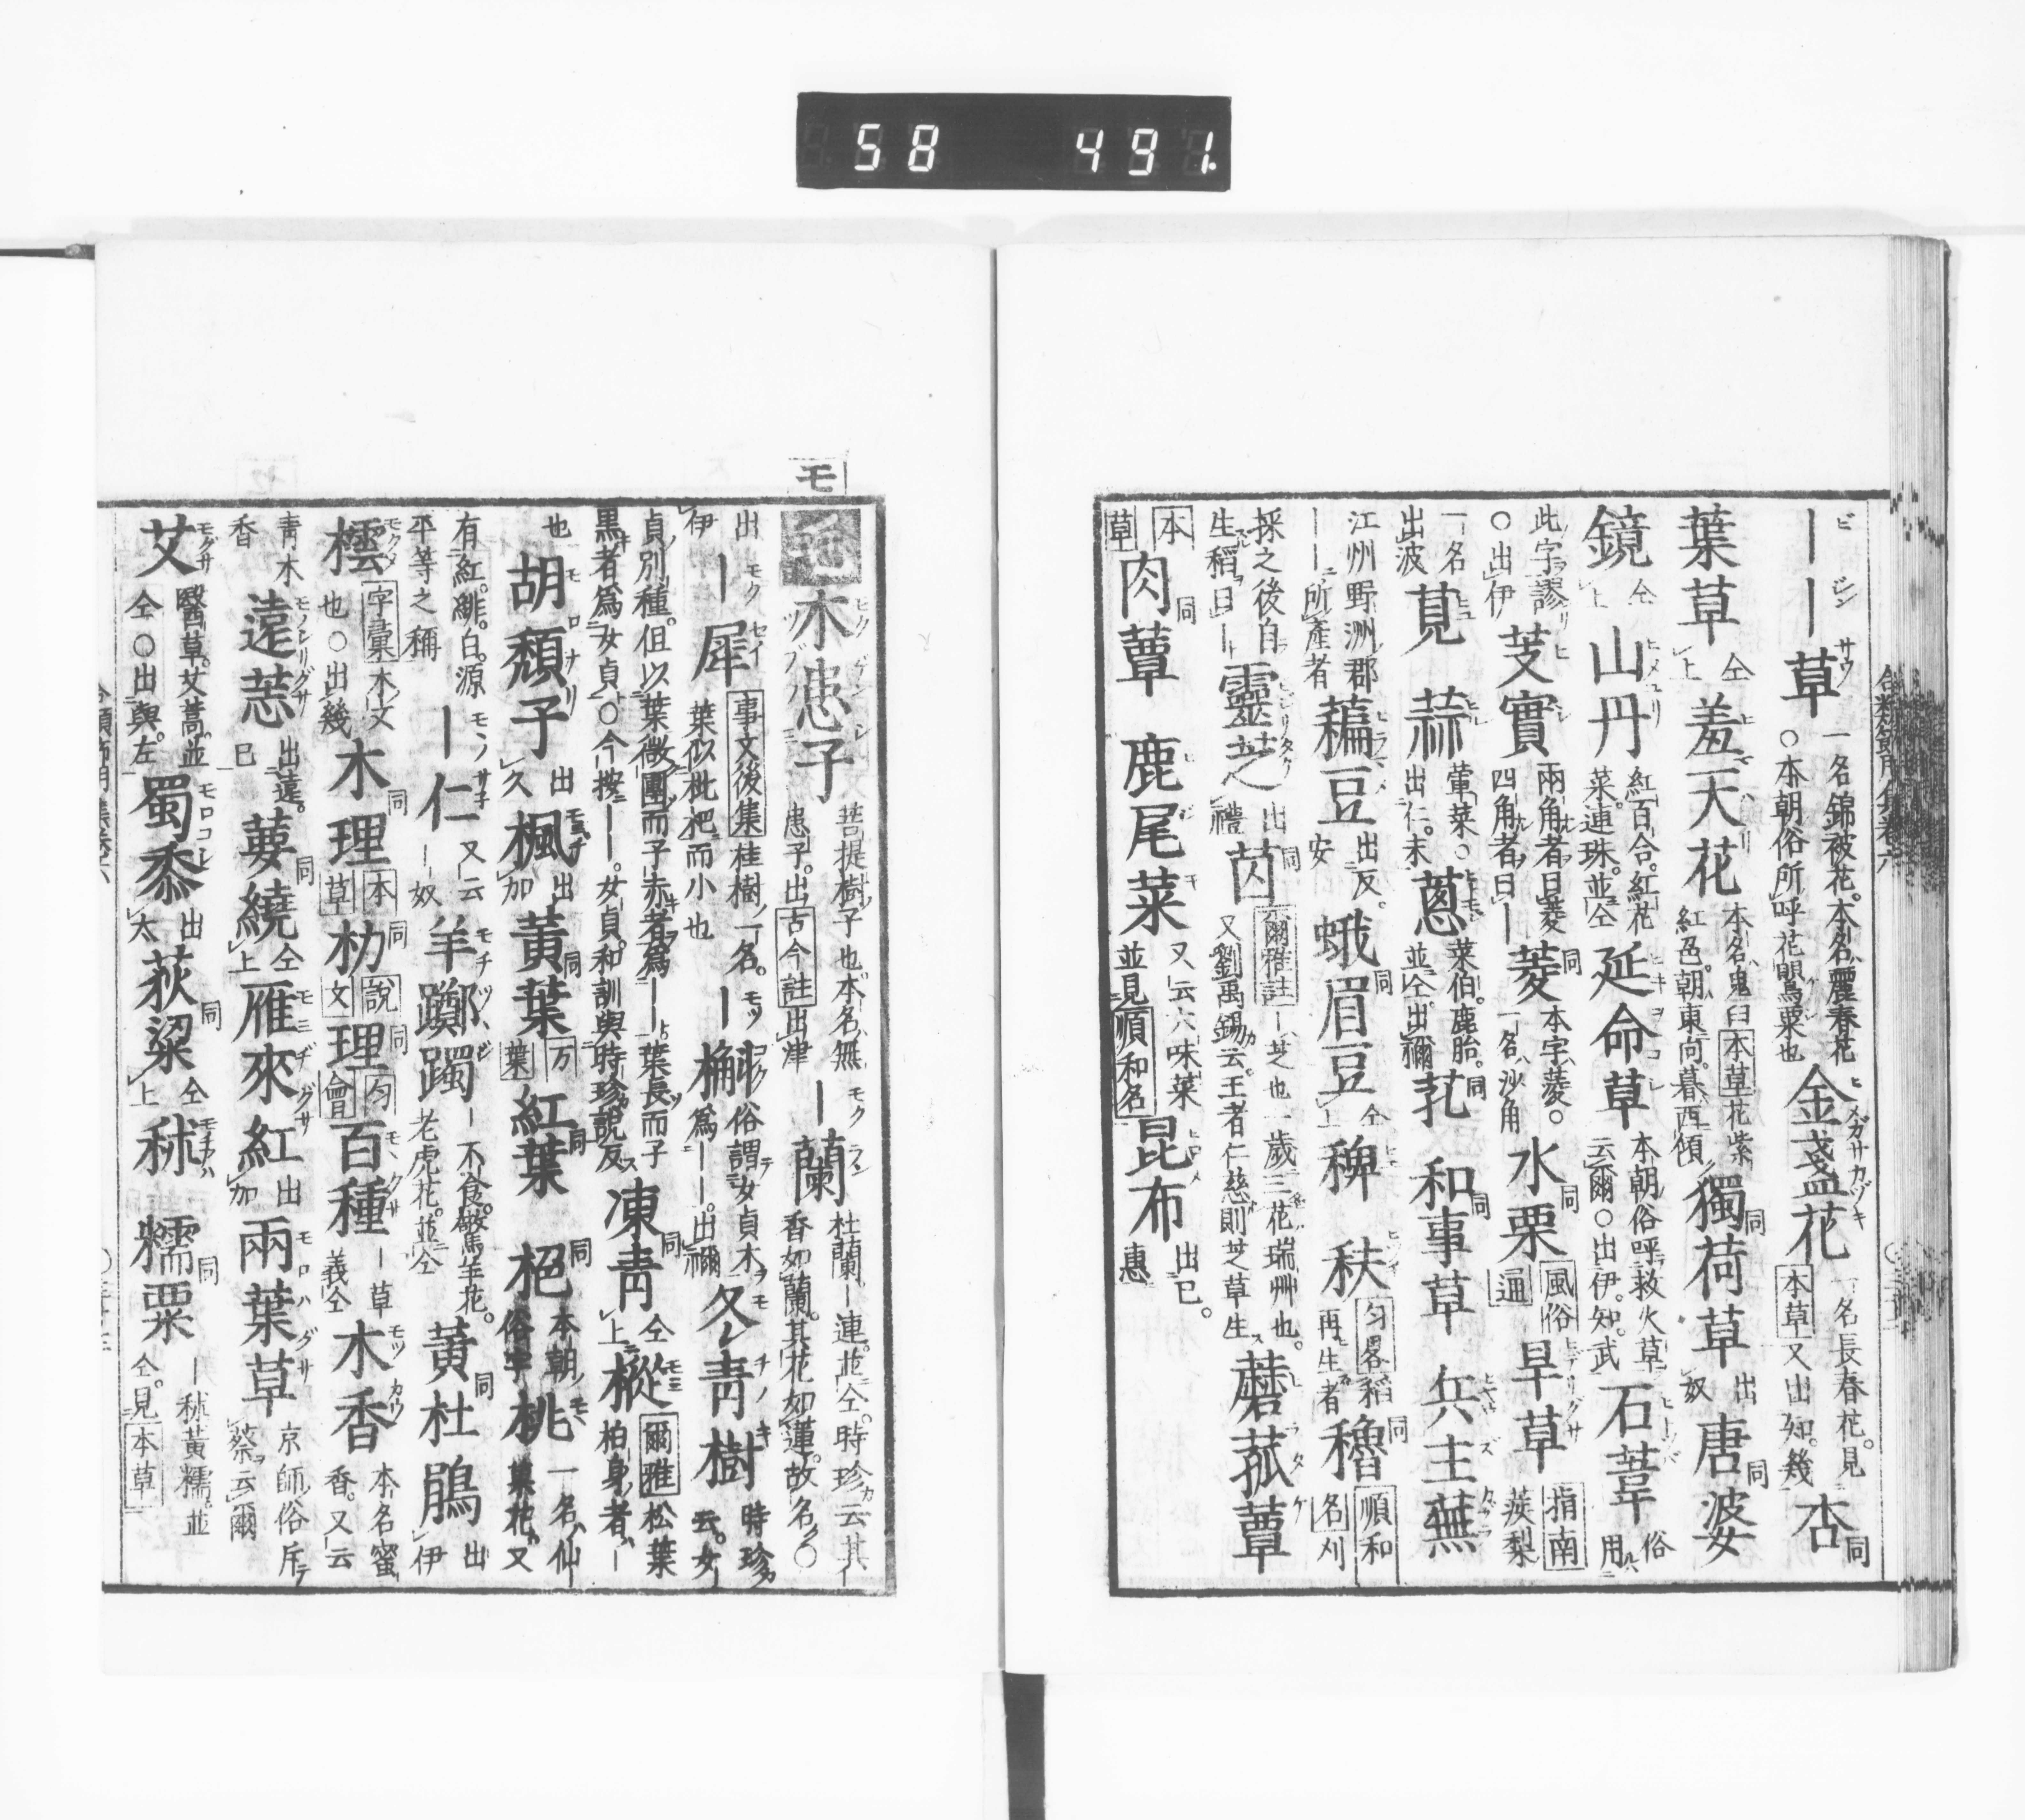 58 491
――草 一名錦被花。本名麗春花○本朝俗所呼花罌粟也 金盞花 一名長春花。見本草又出知。幾 杏
葉草 仝上 羞天花 本名鬼臼本草花紫紅色。朝東向。暮西傾 獨荷草 出奴 唐婆
鏡 仝上 山丹 紅百合。紅花菜。連珠。並仝 延命草 本朝俗呼救火草云爾○出伊。知。武 石葦 俗用
此字謬○出伊 芰實 兩角者曰菱四角者曰― 菱 本字蔆。一名沙角 水栗 風俗通 旱草 指南蒺梨
一名出波 莧 蒜 葷菜。○出仁。末 蔥 菜伯。鹿胎。並仝。出禰 芤 和事草 兵主蕪
江州野洲郡――所產者 稨豆 出反。安 蛾眉豆 仝上 稗 秡 匀畧稻再生者 穭 順和名刈
採之後自生稻曰― 靈芝 出禮 茵 爾雅註―芝也一歲三花瑞艸也。又劉禹錫云。王者仁慈則芝草生 蘑菰蕈
本草 肉蕈 鹿尾菜 又云六味菜並見順和名 昆布 出巳。惠
モ
毛 木患子 菩提樹子也本名無患子。出古今註出津 ―蘭 杜蘭―連。並仝。時珍云其香如蘭。其花如蓮。故名○
出伊 ―犀 事文後集桂樹一名。葉似枇杷而小也 ―檞 俗謂女貞木爲――。出禰 冬青樹 時珍云。女
貞別種。但以葉微團而子赤者爲―葉長而子黑者爲女貞○今按――。女貞。和訓與時珍說反 凍青 仝上 樅 爾雅松葉柏身者―
也 胡頹子 出久 楓 出加 黃葉 万葉 紅葉 栬 本朝俗字 桃 一名仙菓花又
有紅。緋。白。源平等之稱 ―仁 又云―奴 羊躑躅 ―不食。驚羊花。老虎花。並仝 黃杜鵑 出伊
橒 字彙木文也○出幾 木理 本草 朸 說文 理 匀會 百種 ―草義仝 木香 本名蜜香。又云
青木香 遠志 出遠。巳 葽繞 仝上 雁來紅 出加 兩葉草 京師俗斥蔡云爾
艾 醫草。艾蒿。並仝○出與。左 蜀黍 出太 荻粱 仝上 秫 糯粟 ―秫黃糯並仝。見本草